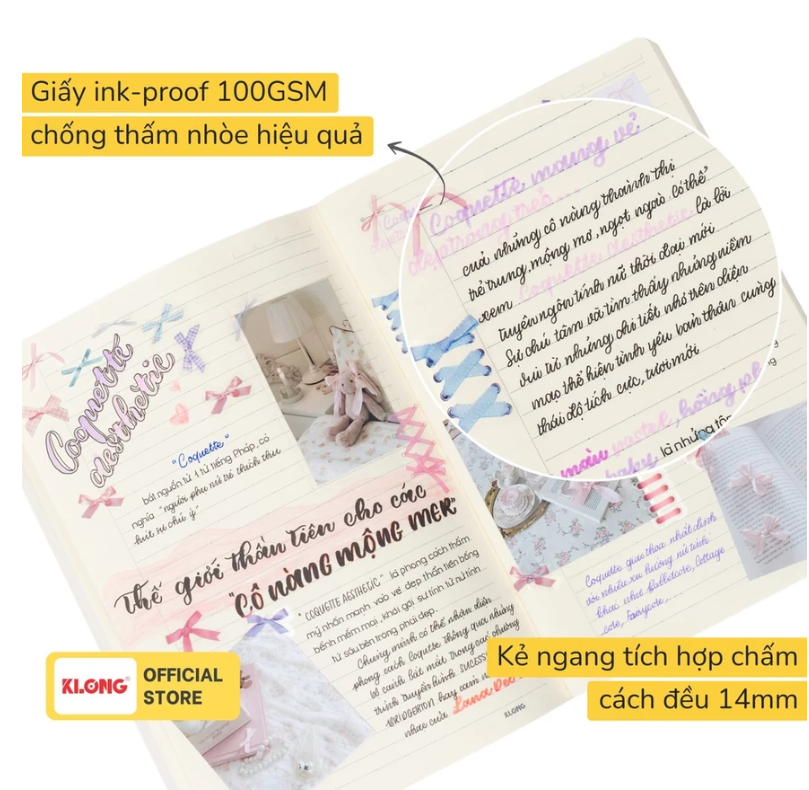 Giấy ink-proof 100GSM
chống thấm nhòe hiệu quả
Coquette mang vẻ
đẹp trong trẻo...
của những cô nàng thành thị
trẻ trung, mộng mơ, ngọt ngào. Có thể
xem Coquette Aesthetic là lời
tuyên ngôn tính nữ thời đại mới
Sự chú tâm và tìm thấy những niềm
vui từ những chi tiết nhỏ trên diện
mạo thể hiện tình yêu bản thân cùng
thái độ tích cực, tươi mới
màu pastel, hồng
baby, là những
Coquette
aesthetic
"Coquette"
bắt nguồn từ 1 từ tiếng Pháp, có
nghĩa "người phụ nữ thích thu
hút sự chú ý"
Thế giới thần tiên cho các
"CÔ NÀNG MỘNG MER"
"COQUETTE AESTHETIC" là phong cách thẩm
mỹ nhấn mạnh vào vẻ đẹp thần tiên bồng
bềnh mềm mại, khơi gợi sự tinh tế nữ tính
từ sâu bên trong phái đẹp.
Chúng mình có thể nhận diện
phong cách Coquette thông qua những
trình truyền hình SUCCESS
BRIDGERTON hay
nhạc của Lana Del
Coquette giao thoa nhất định
với nhiều xu hướng nữ tính
khác như Balletcore, Cottage
core, Fairycore,...
KLONG
KLONG®
OFFICIAL
STORE
Kẻ ngang tích hợp chấm
cách đều 14mm